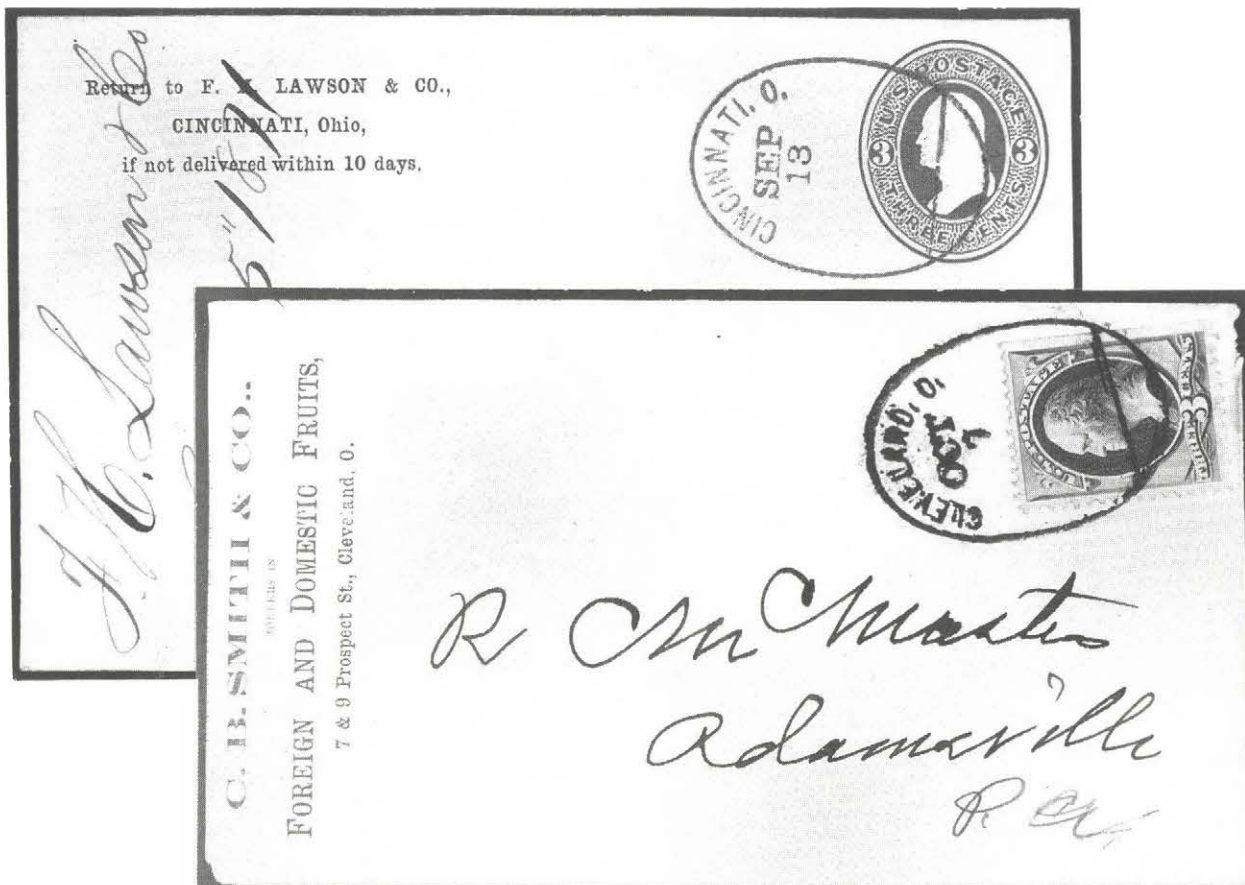 Return to F. H. LAWSON & CO.,
CINCINNATI, Ohio,
if not delivered within 10 days.
F. H. Lawson & Co
CINCINNATI. O.
SEP
13
U.S. POSTAGE
3 3
THREE CENTS
C. B. SMITH & CO..
FOREIGN AND DOMESTIC FRUITS,
7 & 9 Prospect St., Cleveland, O.
CLEVELAND. O.
OCT
7
R Mc Masters
Adamsville